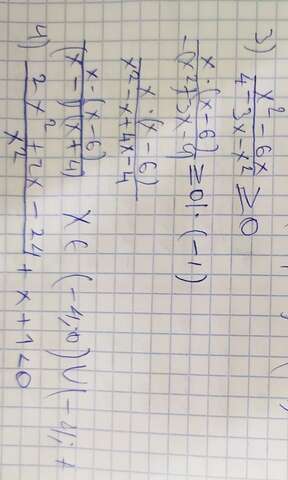 3) x² - 6x / 4-3x-x² ≥ 0
x·(x-6) / -(x²+3x-4) ≥ 0 |·(-1)
x·(x-6) / x²-x+4x-4
x·(x-6) / (x-1)(x+4) X ∈ (-4;0) ∪ (-4; +
4) 2x²+2x-24 / x² + x+1<0